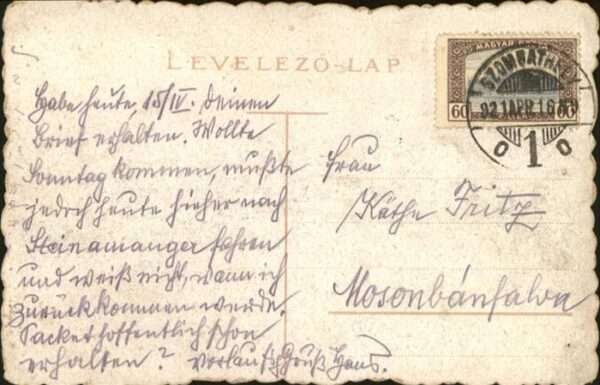 LEVELEZŐ-LAP
MAGYAR
60 60
SZOMBATHELY
921 APR 16
1
Habe heute, 15/IV. deinen
Brief erhalten. Wollte
Sonntag kommen, mußte
jedoch heute hieher nach
Steinamanger fahren
und weiß nicht, wann ich
zurückkommen werde.
Packet hoffentlich schon
erhalten? Vorläufig Gruß Hans.
Frau
Käthe Fritz
Mosonbánfalva